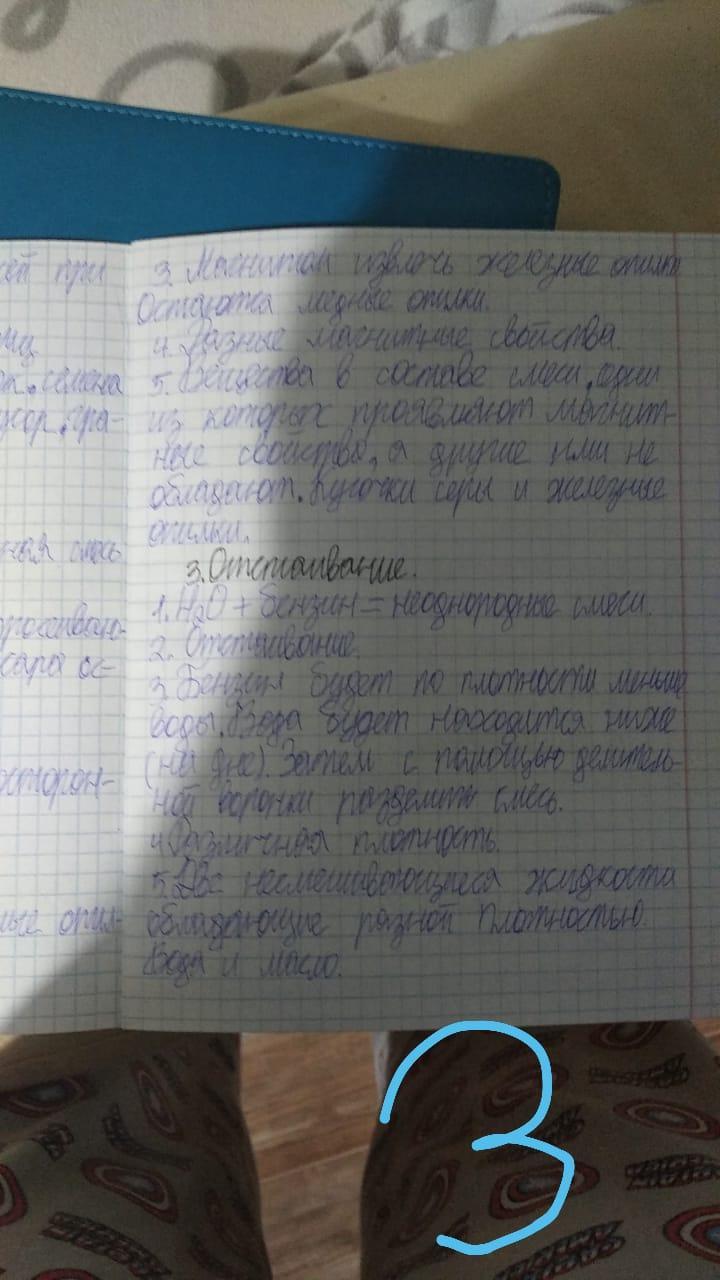 сей при
ец
ол. семена
усор, гра-
ная смесь
просеиваю-
сара ос-
осторон-
ные опил-
3. Магнитом извлечь железные опилки
Остаются медные опилки.
4. Разные магнитные свойства.
5. Вещества в составе смеси, одни
из которых проявляют магнит-
ные свойства, а другие ими не
обладают. Кусочки серы и железные
опилки.
3. Отстаивание.
1. H₂O + бензин = неоднородные смеси.
2. Отстаивание.
3. Бензин будет по плотности меньше
воды. Вода будет находится ниже
(на дне). Затем с помощью делитель-
ной воронки разделить смесь.
4. Различная плотность.
5. Две несмешивающиеся жидкости
обладающие разной плотностью.
Вода и масло.
3